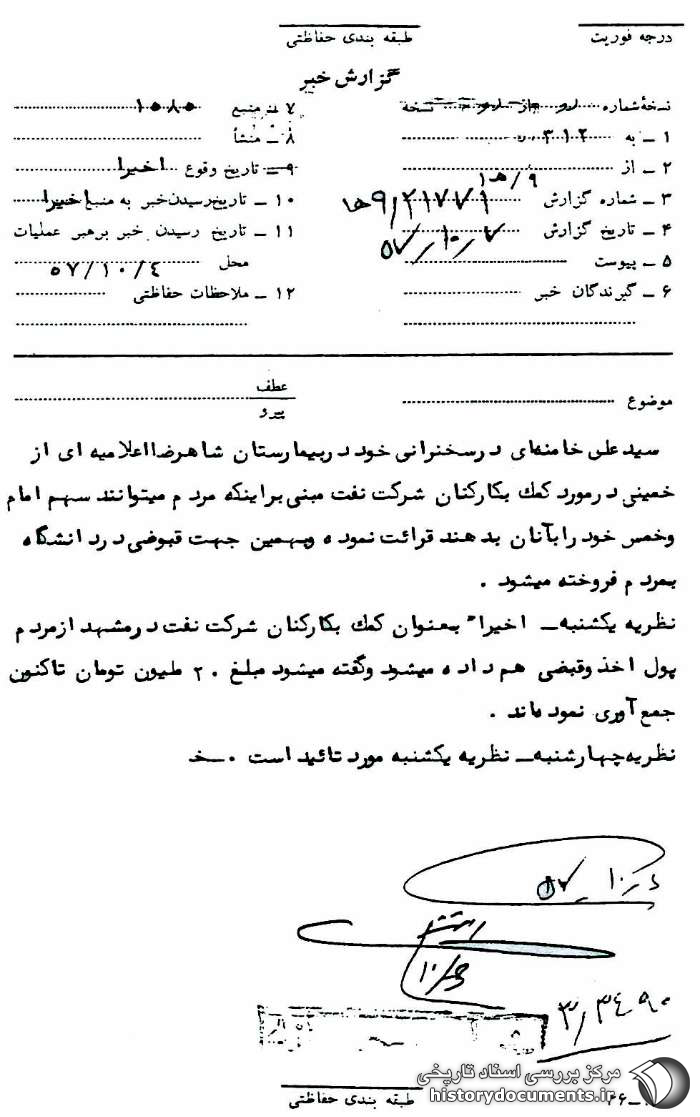 درجه فوریت
طبقه بندی حفاظتی
گزارش خبر
نسخهٔ شماره نسخه
۱ ـ به ۳۱۲
۲ ـ از ۹/ه۱
۳ ـ شماره گزارش ۹/۲۱۷۷۱ه۱
۴ ـ تاریخ گزارش ۵۷/۱۰/۷
۵ ـ پیوست
۶ ـ گیرندگان خبر
۷ منبع ۱۰۸۵
۸ ـ منشأ
۹ ـ تاریخ وقوع اخیرا
۱۰ ـ تاریخ رسیدن خبر به منبع اخیرا
۱۱ ـ تاریخ رسیدن خبر برهبر عملیات
محل ۵۷/۱۰/۴
۱۲ ـ ملاحظات حفاظتی
موضوع
عطف
پیرو
سیدعلی خامنه‌ای درسخنرانی خود دربیمارستان شاهرضا اعلامیه ای از
خمینی درمورد کمک بکارکنان شرکت نفت مبنی براینکه مردم میتوانند سهم امام
وخمس خود را بآنان بدهند قرائت نموده وبهمین جهت قبوضی دردانشگاه
بمردم فروخته میشود .
نظریه یکشنبه ـ اخیراً بعنوان کمک بکارکنان شرکت نفت درمشهد ازمردم
پول اخذ وقبضی هم داده میشود وگفته میشود مبلغ ۲۰ ملیون تومان تاکنون
جمع آوری نموده‌اند .
نظریه چهارشنبه ـ نظریه یکشنبه مورد تائید است . ـخـ
۳/۳۴۹۰
مرکز بررسی اسناد تاریخی
historydocuments.ir
طبقه بندی حفاظتی